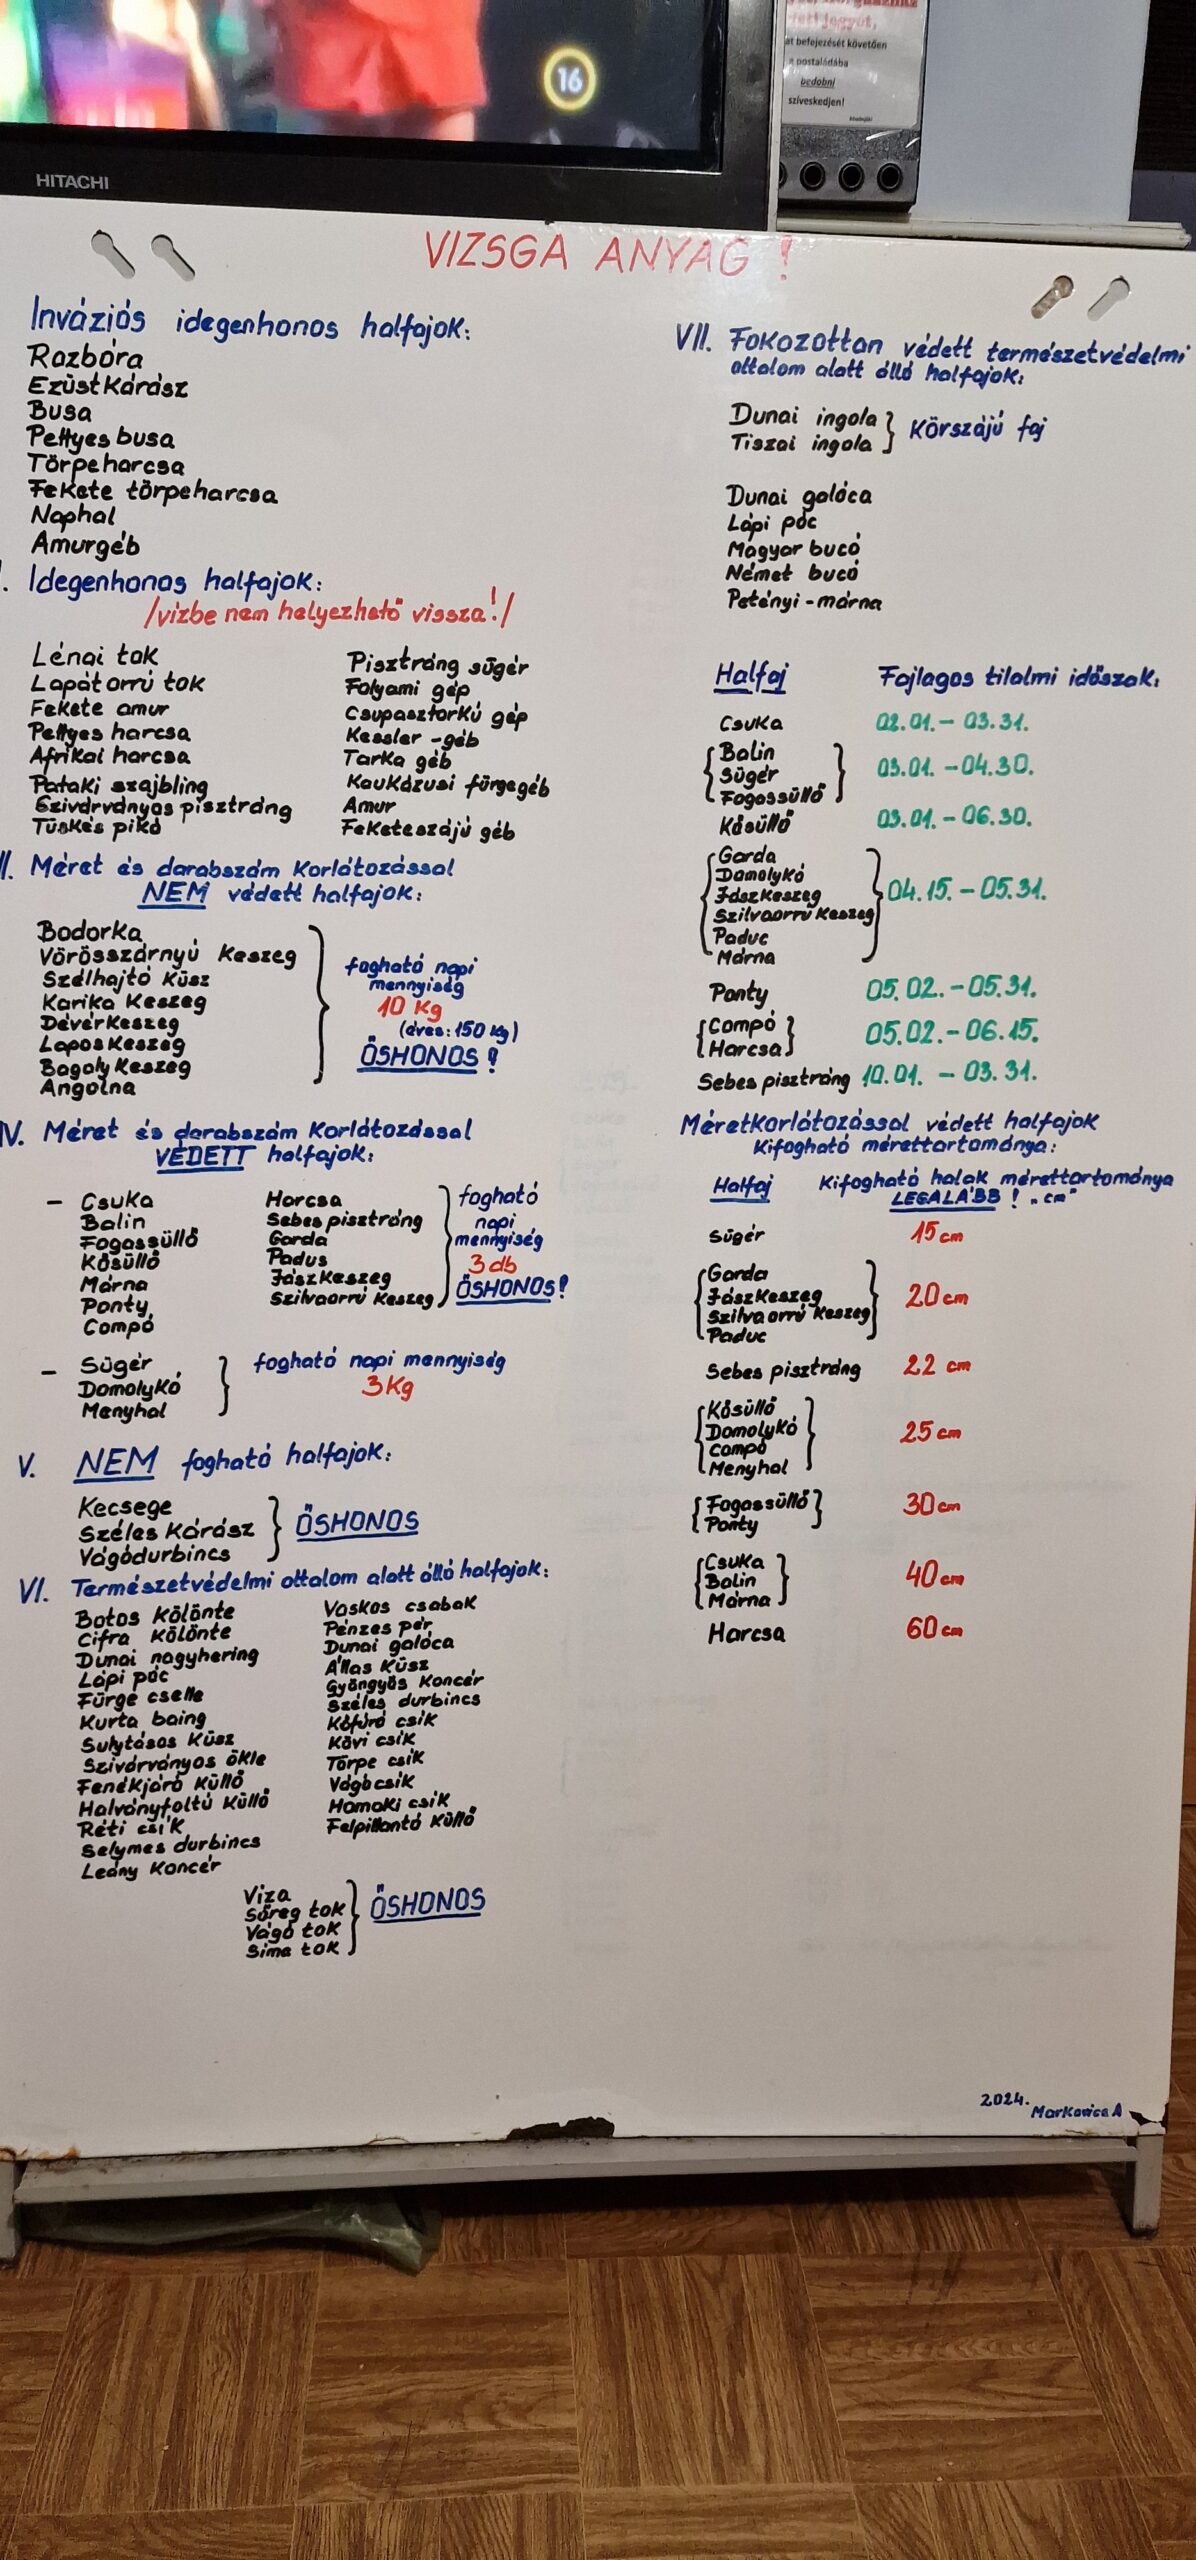 16
fett jegyét,
at befejezését követően
a postaládába
bedobni
szíveskedjen!
HITACHI
VIZSGA ANYAG !
Inváziós idegenhonos halfajok:
Razbóra
Ezüstkárász
Busa
Pettyes busa
Törpeharcsa
Fekete törpeharcsa
Naphal
Amurgéb
I. Idegenhonos halfajok:
/vízbe nem helyezhető vissza!/
Lénai tok
Lapátorrú tok
Fekete amur
Pettyes harcsa
Afrikai harcsa
Pataki szajbling
Szivárványos pisztráng
Tüskés pikó
Pisztráng sügér
Folyami gép
Csupasztorkú gép
Kessler-géb
Tarka géb
Kaukázusi fürgegéb
Amur
Feketeszájú géb
II. Méret és darabszám korlátozással
NEM védett halfajok:
Bodorka
Vörösszárnyú keszeg
Szélhajtó küsz
Karika keszeg
Dévérkeszeg
Laposkeszeg
Bagolykeszeg
Angolna
fogható napi
mennyiség
10 kg
(éves: 150 kg)
ŐSHONOS !
IV. Méret és darabszám korlátozással
VÉDETT halfajok:
- Csuka
Balin
Fogassüllő
Kősüllő
Márna
Ponty
Compó
Harcsa
Sebes pisztráng
Garda
Padus
Jászkeszeg
Szilvaorrú keszeg
fogható
napi
mennyiség
3 db
ŐSHONOS!
- Sügér
Domolykó
Menyhal
fogható napi mennyiség
3 kg
V. NEM fogható halfajok:
Kecsege
Széles kárász
Vágódurbincs
ŐSHONOS
VI. Természetvédelmi oltalom alatt álló halfajok:
Botos kölönte
Cifra kölönte
Dunai nagyhering
Lápi póc
Fürge cselle
Kurta baing
Sujtásos küsz
Szivárványos ökle
Fenékjáró küllő
Halványfoltú küllő
Réti csík
Selymes durbincs
Leány koncér
Vaskos csabak
Pénzes pér
Dunai galóca
Állas küsz
Gyöngyös koncér
Széles durbincs
Kőfúró csík
Kövi csík
Törpe csík
Vágócsík
Homoki csík
Felpillantó küllő
Viza
Sőreg tok
Vágó tok
Sima tok
ŐSHONOS
VII. Fokozottan védett természetvédelmi
oltalom alatt álló halfajok:
Dunai ingola
Tiszai ingola
Körszájú faj
Dunai galóca
Lápi póc
Magyar bucó
Német bucó
Petényi-márna
Halfaj Fajlagos tilalmi időszak:
Csuka 02.01. - 03.31.
Balin
Sügér
Fogassüllő
03.01. - 04.30.
Kősüllő 03.01. - 06.30.
Garda
Domolykó
Jászkeszeg
Szilvaorrú keszeg
Paduc
Márna
04.15. - 05.31.
Ponty 05.02. - 05.31.
Compó
Harcsa
05.02. - 06.15.
Sebes pisztráng 10.01. - 03.31.
Méretkorlátozással védett halfajok
kifogható mérettartománya:
Halfaj Kifogható halak mérettartománya
LEGALÁBB ! "cm"
Sügér 15 cm
Garda
Jászkeszeg
Szilvaorrú keszeg
Paduc
20 cm
Sebes pisztráng 22 cm
Kősüllő
Domolykó
Compó
Menyhal
25 cm
Fogassüllő
Ponty
30 cm
Csuka
Balin
Márna
40 cm
Harcsa 60 cm
2024.
Markovics A